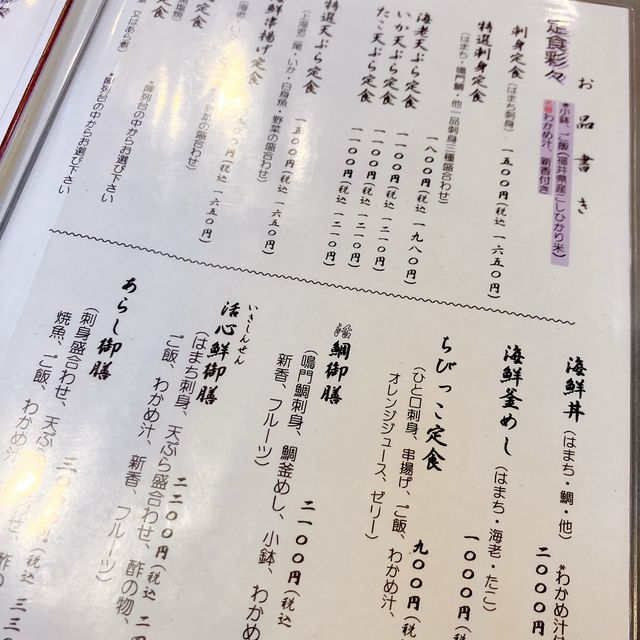 お品書き
定食彩々
※小鉢、ご飯（福井県産こしひかり米）
名物わかめ汁、新香付き
刺身定食（はまち刺身）
一五〇〇円（税込 一六五〇円）
特選刺身定食
（はまち・鳴門鯛、他一品刺身三種盛合わせ）
一八〇〇円（税込 一九八〇円）
海老天ぷら定食
一一〇〇円（税込 一二一〇円）
いか天ぷら定食
一一〇〇円（税込 一二一〇円）
たこ天ぷら定食
一一〇〇円（税込 一二一〇円）
特選天ぷら定食
（上海老二尾・いか・白身魚・野菜の盛合わせ）
一五〇〇円（税込 一六五〇円）
鮮串揚げ定食
野菜の盛合わせ）
〇〇円（税込 一六五〇円）
定食
※陳列台の中からお選び下さい
定食
又はあら煮）
※陳列台の中からお選び下さい
海鮮丼
（はまち・鯛・他）
※わかめ汁付
二〇〇〇
海鮮釜めし
（はまち・海老・たこ）
一〇〇〇円（税
ちびっこ定食
（ひと口刺身、串揚げ、ご飯、わかめ汁、
オレンジジュース、ゼリー）
九〇〇円（税
活鯛御膳
（鳴門鯛刺身、鯛釜めし、小鉢、わかめ
新香、フルーツ）
二一〇〇円（税込
いきしんせん
活心鮮御膳
（はまち刺身、天ぷら盛合わせ、酢の物、
ご飯、わかめ汁、新香、フルーツ）
二二〇〇円（税込 二四
あらし御膳
（刺身盛合わせ、天ぷら盛合わせ、酢の
焼魚、ご飯、わかめ汁
三〇〇〇円（税込 三三〇